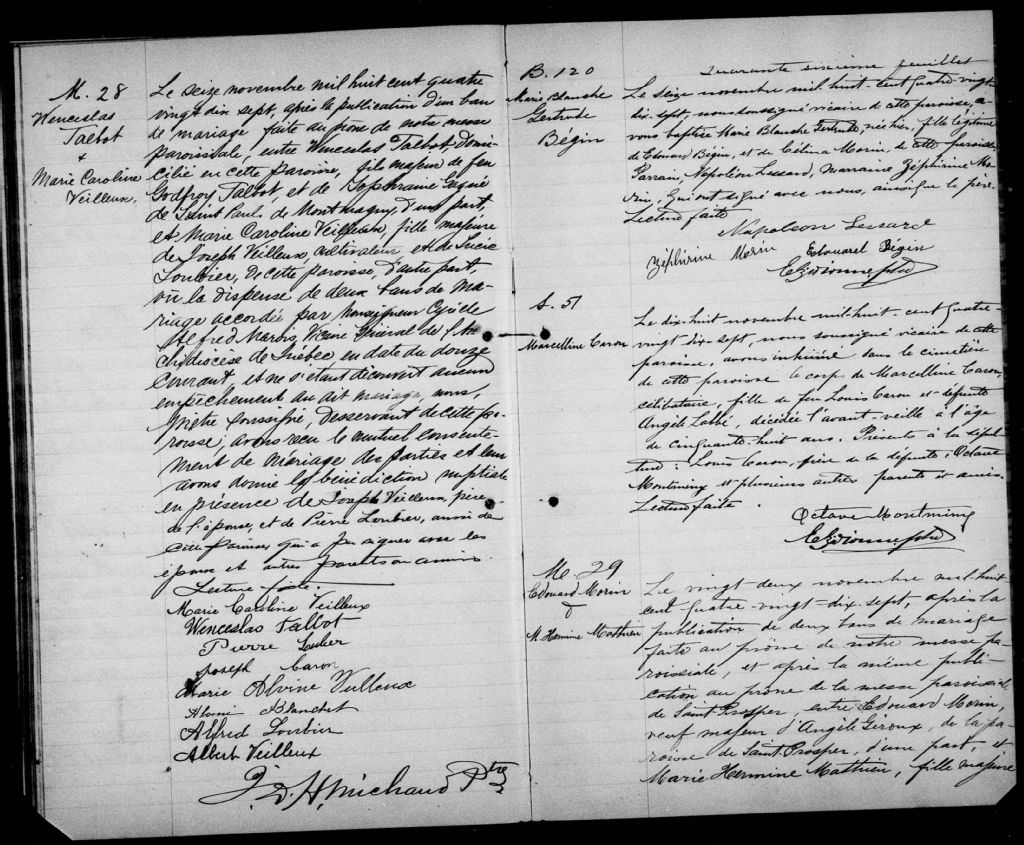 M. 28
Wenceslas
Talbot
+
Marie Caroline
Veilleux.
Le seize novembre mil huit cent quatre
vingt dix sept, après la publication d'un ban
de mariage faite au prône de notre messe
paroissiale, entre Wenceslas Talbot, domi-
cilié en cette paroisse, fils majeur de feu
Godfroy Talbot, et de Sophranie
de Saint Paul de Montmagny, d'une part
et Marie Caroline Veilleux, fille majeure
de Joseph Veilleux, cultivateur et de Lucie
Loubier, de cette paroisse, d'autre part,
vu la dispense de deux bans de ma-
riage accordée par Monseigneur Cyrille
Alfred Marois, Vicaire Général de l'Ar
chidiocèse de Québec en date du douze
courant, et ne s'étant découvert aucun
empêchement au dit mariage, nous,
Prêtre soussigné, desservant de cette pa-
roisse, avons reçu le mutuel consente-
ment de mariage des parties et leur
avons donné la bénédiction nuptiale
en présence de Joseph Veilleux, père
de l'épouse, et de Pierre Loubier, aussi de
cette paroisse qui a pu signer avec les
époux et autres parents et amis.
Lecture faite.
Marie Caroline Veilleux
Wenceslas Talbot
Pierre Loubier
Joseph Caron
Marie Alvine Veilleux
Blanchet
Alfred Loubier
Albert Veilleux
J. D. H. Michaud Ptre
Quarante sixième feuillet
B. 120
Marie Blanche
Gertrude
Bégin
Le seize novembre mil huit-cent quatre-vingt
dix-sept, nous soussigné vicaire de cette paroisse, a-
vons baptisé Marie Blanche Gertrude, née hier, fille légitime
de Edouard Bégin, et de Célima Morin, de cette paroisse.
Parrain, Napoléon Lessard, marraine Zéphirine Mo-
rin, qui ont signé avec nous, ainsi que le père.
Lecture faite
Napoleon Lessard
Zéphirine Morin Edouard Bégin
S. 51
Marcelline Caron
Le dix-huit novembre mil huit-cent quatre-
vingt dix-sept, nous soussigné vicaire de cette
paroisse, avons inhumé dans le cimetière
de cette paroisse le corps de Marcelline Caron,
célibataire, fille de feu Louis Caron et défunte
Angèle Labbé, décédée l'avant-veille à l'âge
de cinquante-huit ans. Présents à la sépul-
ture: Louis Caron, frère de la défunte, Octave
Montminy et plusieurs autres parents et amis.
Lecture faite.
Octave Montminy
M. 29
Edouard Morin
&
M. Hermine Mathieu
Le vingt-deux novembre mil huit-
cent-quatre-vingt-dix-sept, après la
publication de deux bans de mariage
faite au prône de notre messe pa-
roissiale, et après la même publi-
cation au prône de la messe paroissiale
de Saint Prosper, entre Edouard Morin,
veuf majeur d'Angèle Giroux, de la pa-
roisse de Saint-Prosper, d'une part, et
Marie Hermine Mathieu, fille majeure